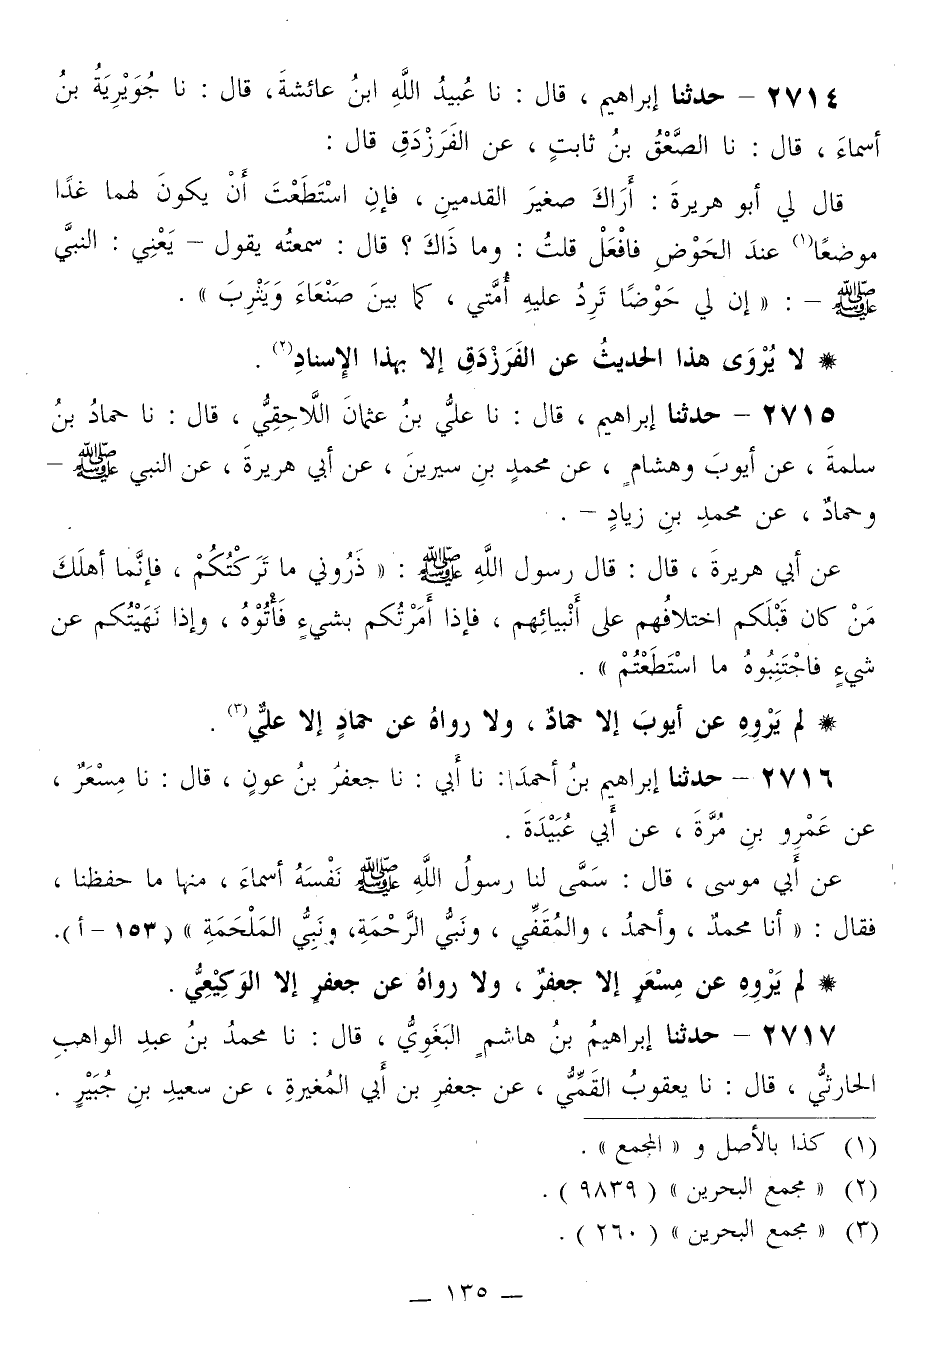 ٢٧١٤ – حدثنا إبراهيم ، قال : نا عُبيدُ اللَّهِ ابنُ عائشةَ، قال : نا جُوَيْرِيَةُ بنُ
أسماءَ ، قال : نا الصَّعْقُ بنُ ثابتٍ ، عن الفَرَزْدَقِ قال :
قال لي أبو هريرةَ : أَرَاكَ صغيرَ القدمينِ ، فإنِ اسْتَطَعْتَ أَنْ يكونَ لهما غدًا
موضعًا(١) عندَ الحَوْضِ فافْعَلْ قلتُ : وما ذَاكَ ؟ قال : سمعتُه يقول – يَعْنِي : النبيَّ
ﷺ – : « إن لي حَوْضًا تَرِدُ عليهِ أُمَّتي ، كما بينَ صَنْعَاءَ وَيَثْرِبَ » .
* لا يُرْوَى هذا الحديثُ عن الفَرَزْدَقِ إلا بهذا الإِسنادِ(٢) .
٢٧١٥ – حدثنا إبراهيم ، قال : نا عليُّ بنُ عثمانَ اللَّاحِقِيُّ ، قال : نا حمادُ بنُ
سلمةَ ، عن أيوبَ وهشامٍ ، عن محمدٍ بنِ سيرينَ ، عن أبي هريرةَ ، عن النبي ﷺ –
وحمادٌ ، عن محمدِ بنِ زيادٍ – .
عن أبي هريرةَ ، قال : قال رسول اللَّهِ ﷺ : « ذَرُوني ما تَرَكْتُكُمْ ، فإنَّما أهلَكَ
مَنْ كان قَبْلَكم اختلافُهم على أَنْبيائِهم ، فإذا أَمَرْتُكم بشيءٍ فَأْتُوْهُ ، وإذا نَهَيْتُكم عن
شيءٍ فاجْتَنِبُوهُ ما اسْتَطَعْتُمْ » .
* لم يَرْوِهِ عن أيوبَ إلا حمادٌ ، ولا رواهُ عن حمادٍ إلا عليٌّ(٣) .
٢٧١٦ – حدثنا إبراهيم بنُ أحمدَ : نا أَبي : نا جعفرُ بنُ عونٍ ، قال : نا مِسْعَرٌ ،
عن عَمْرِو بنِ مُرَّةَ ، عن أَبي عُبَيْدَةَ .
عن أَبي موسى ، قال : سَمَّى لنا رسولُ اللَّهِ ﷺ نَفْسَهُ أسماءَ ، منها ما حفظنا ،
فقال : « أنا محمدٌ ، وأحمدُ ، والمُقَفِّي ، ونَبيُّ الرَّحْمَةِ، ونَبِيُّ المَلْحَمَةِ » ( ١٥٣ – أ ).
* لم يَرْوِهِ عن مِسْعَرٍ إلا جعفرٌ ، ولا رواهُ عن جعفرٍ إلا الوَكِيْعِيُّ .
٢٧١٧ – حدثنا إبراهيمُ بنُ هاشمٍ البَغَوِيُّ ، قال : نا محمدُ بنُ عبدِ الواهبِ
الحارثيُّ ، قال : نا يعقوبُ القَمِّيُّ ، عن جعفرِ بن أَبي المُغيرةِ ، عن سعيدِ بنِ جُبَيْرٍ .
(١) كذا بالأصل و « المجمع » .
(٢) « مجمع البحرين » ( ٩٨٣٩ ) .
(٣) « مجمع البحرين » ( ٢٦٠ ) .
– ١٣٥ –